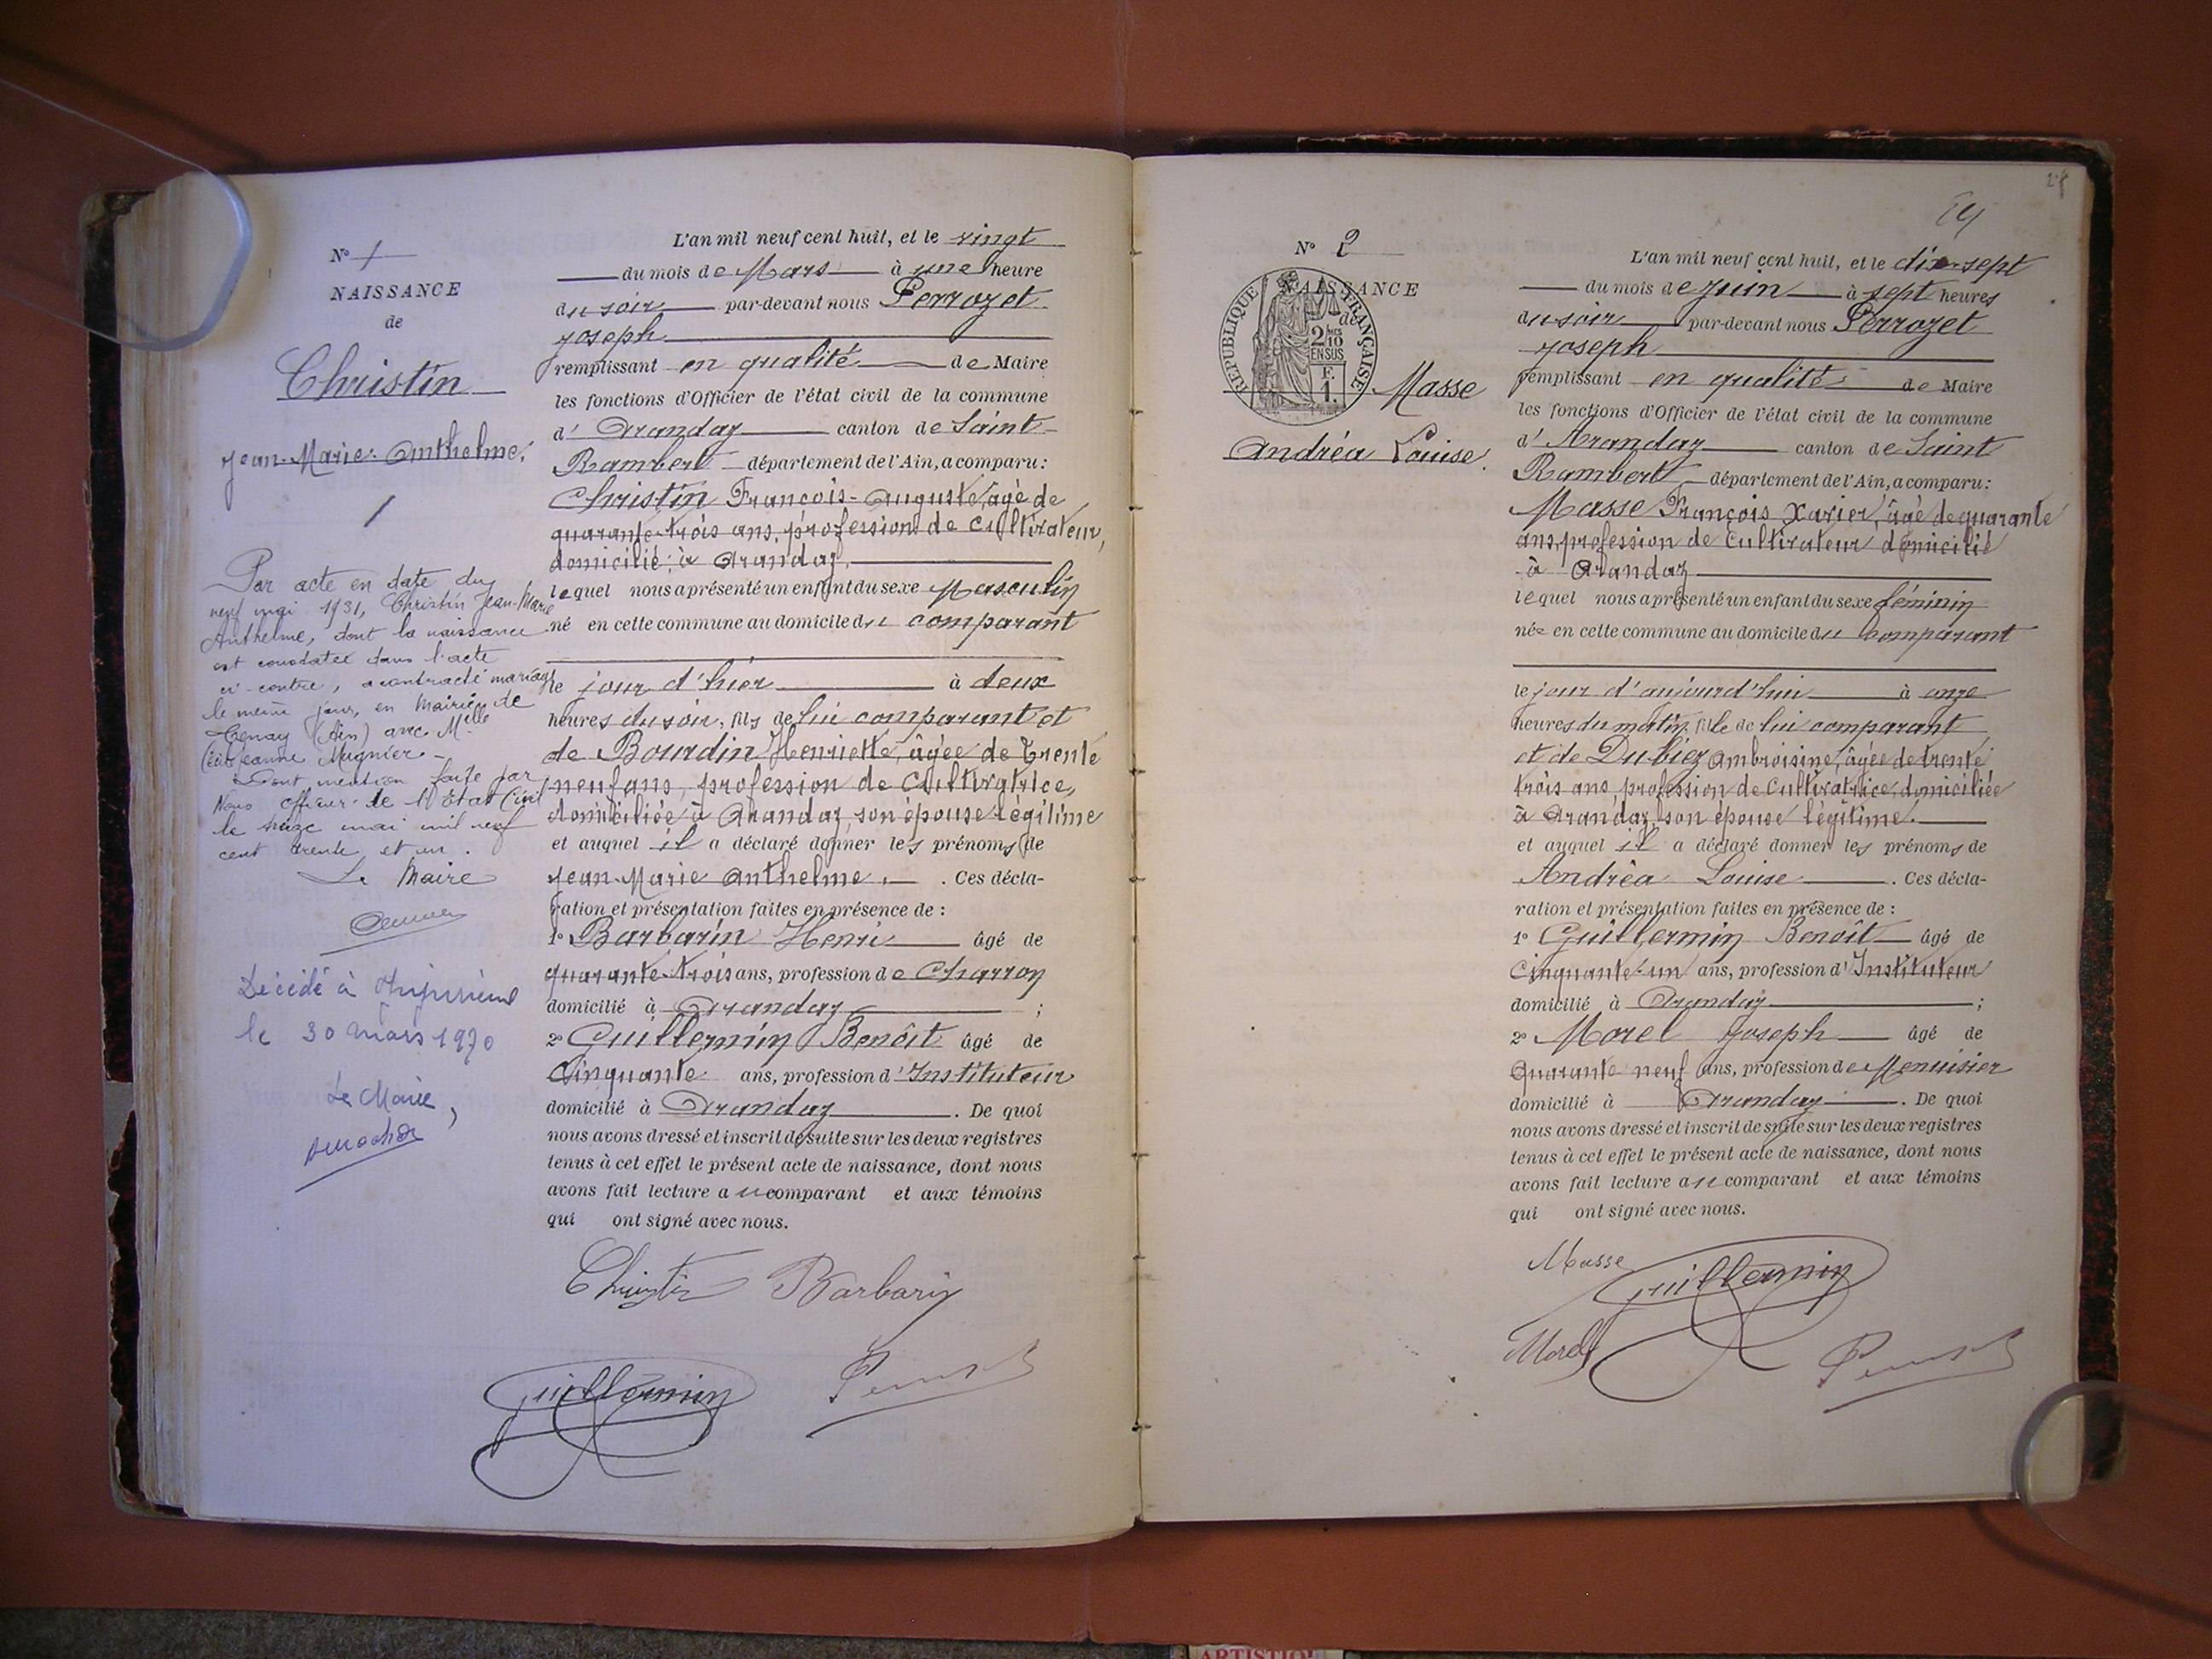 N° 1
NAISSANCE
de
Christin
Jean-Marie-Anthelme.
Par acte en date du
neuf mai 1931, Christin Jean-Marie
Anthelme, dont la naissance
est constatée dans l'acte
ci-contre, a contracté mariage
le même jour, en Mairie de
Tenay (Ain) avec Mlle
Jeanne Mugnier -
Dont mention faite par
Nous officier de l'Etat Civil
le treize mai mil neuf
cent trente et un.
Le Maire
Décédé à
le 30 mars 1970
Le Maire,
L'an mil neuf cent huit, et le vingt
du mois de Mars à une heure
du soir par-devant nous Perrozet
Joseph
remplissant en qualité de Maire
les fonctions d'Officier de l'état civil de la commune
d' Arandaz canton de Saint-
Rambert département de l'Ain, a comparu:
Christin François-Auguste, âgé de
quarante-trois ans, profession de cultivateur,
domicilié à Arandaz,
lequel nous a présenté un enfant du sexe Masculin
né en cette commune au domicile du comparant
le jour d'hier à deux
heures du soir, fils de lui comparant et
de Bourdin Henriette, âgée de trente
neuf ans, profession de Cultivatrice,
domiciliée à Arandaz, son épouse légitime
et auquel il a déclaré donner les prénoms de
Jean-Marie Anthelme. . Ces décla-
ration et présentation faites en présence de :
1° Barbarin Henri âgé de
quarante-trois ans, profession de Charron
domicilié à Arandaz ;
2° Guillermin Benoît âgé de
Cinquante ans, profession d'Instituteur
domicilié à Arandaz . De quoi
nous avons dressé et inscrit de suite sur les deux registres
tenus à cet effet le présent acte de naissance, dont nous
avons fait lecture au comparant et aux témoins
qui ont signé avec nous.
Christin Barbarin
Guillermin Perrozet
24
N° 2
NAISSANCE
de
RÉPUBLIQUE FRANÇAISE
2/10
EN SUS
F.
1.
Masse
Andréa Louise.
L'an mil neuf cent huit, et le dix-sept
du mois de Juin à sept heures
du soir par-devant nous Perrozet
Joseph
remplissant en qualité de Maire
les fonctions d'Officier de l'état civil de la commune
d' Arandaz canton de Saint
Rambert département de l'Ain, a comparu:
Masse François Xavier, âgé de quarante
ans, profession de Cultivateur domicilié
à Arandaz
lequel nous a présenté un enfant du sexe féminin
née en cette commune au domicile du Comparant
le jour d'aujourd'hui à onze
heures du matin, fille de lui comparant
et de Dubiez Ambroisine, âgée de trente
trois ans, profession de Cultivatrice, domiciliée
à Arandaz, son épouse légitime.
et auquel il a déclaré donner les prénoms de
Andréa Louise . Ces décla-
ration et présentation faites en présence de :
1° Guillermin Benoît âgé de
Cinquante-un ans, profession d'Instituteur
domicilié à Arandaz ;
2° Morel Joseph âgé de
Quarante neuf ans, profession de Menuisier
domicilié à Arandaz . De quoi
nous avons dressé et inscrit de suite sur les deux registres
tenus à cet effet le présent acte de naissance, dont nous
avons fait lecture au comparant et aux témoins
qui ont signé avec nous.
Masse Guillermin
Morel Perrozet